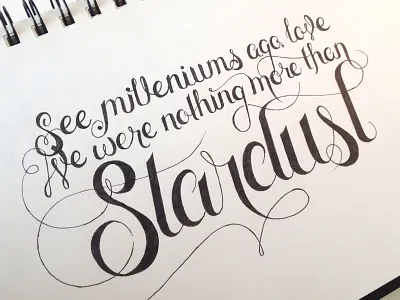 See milleniums ago, love
We were nothing more than
Stardust